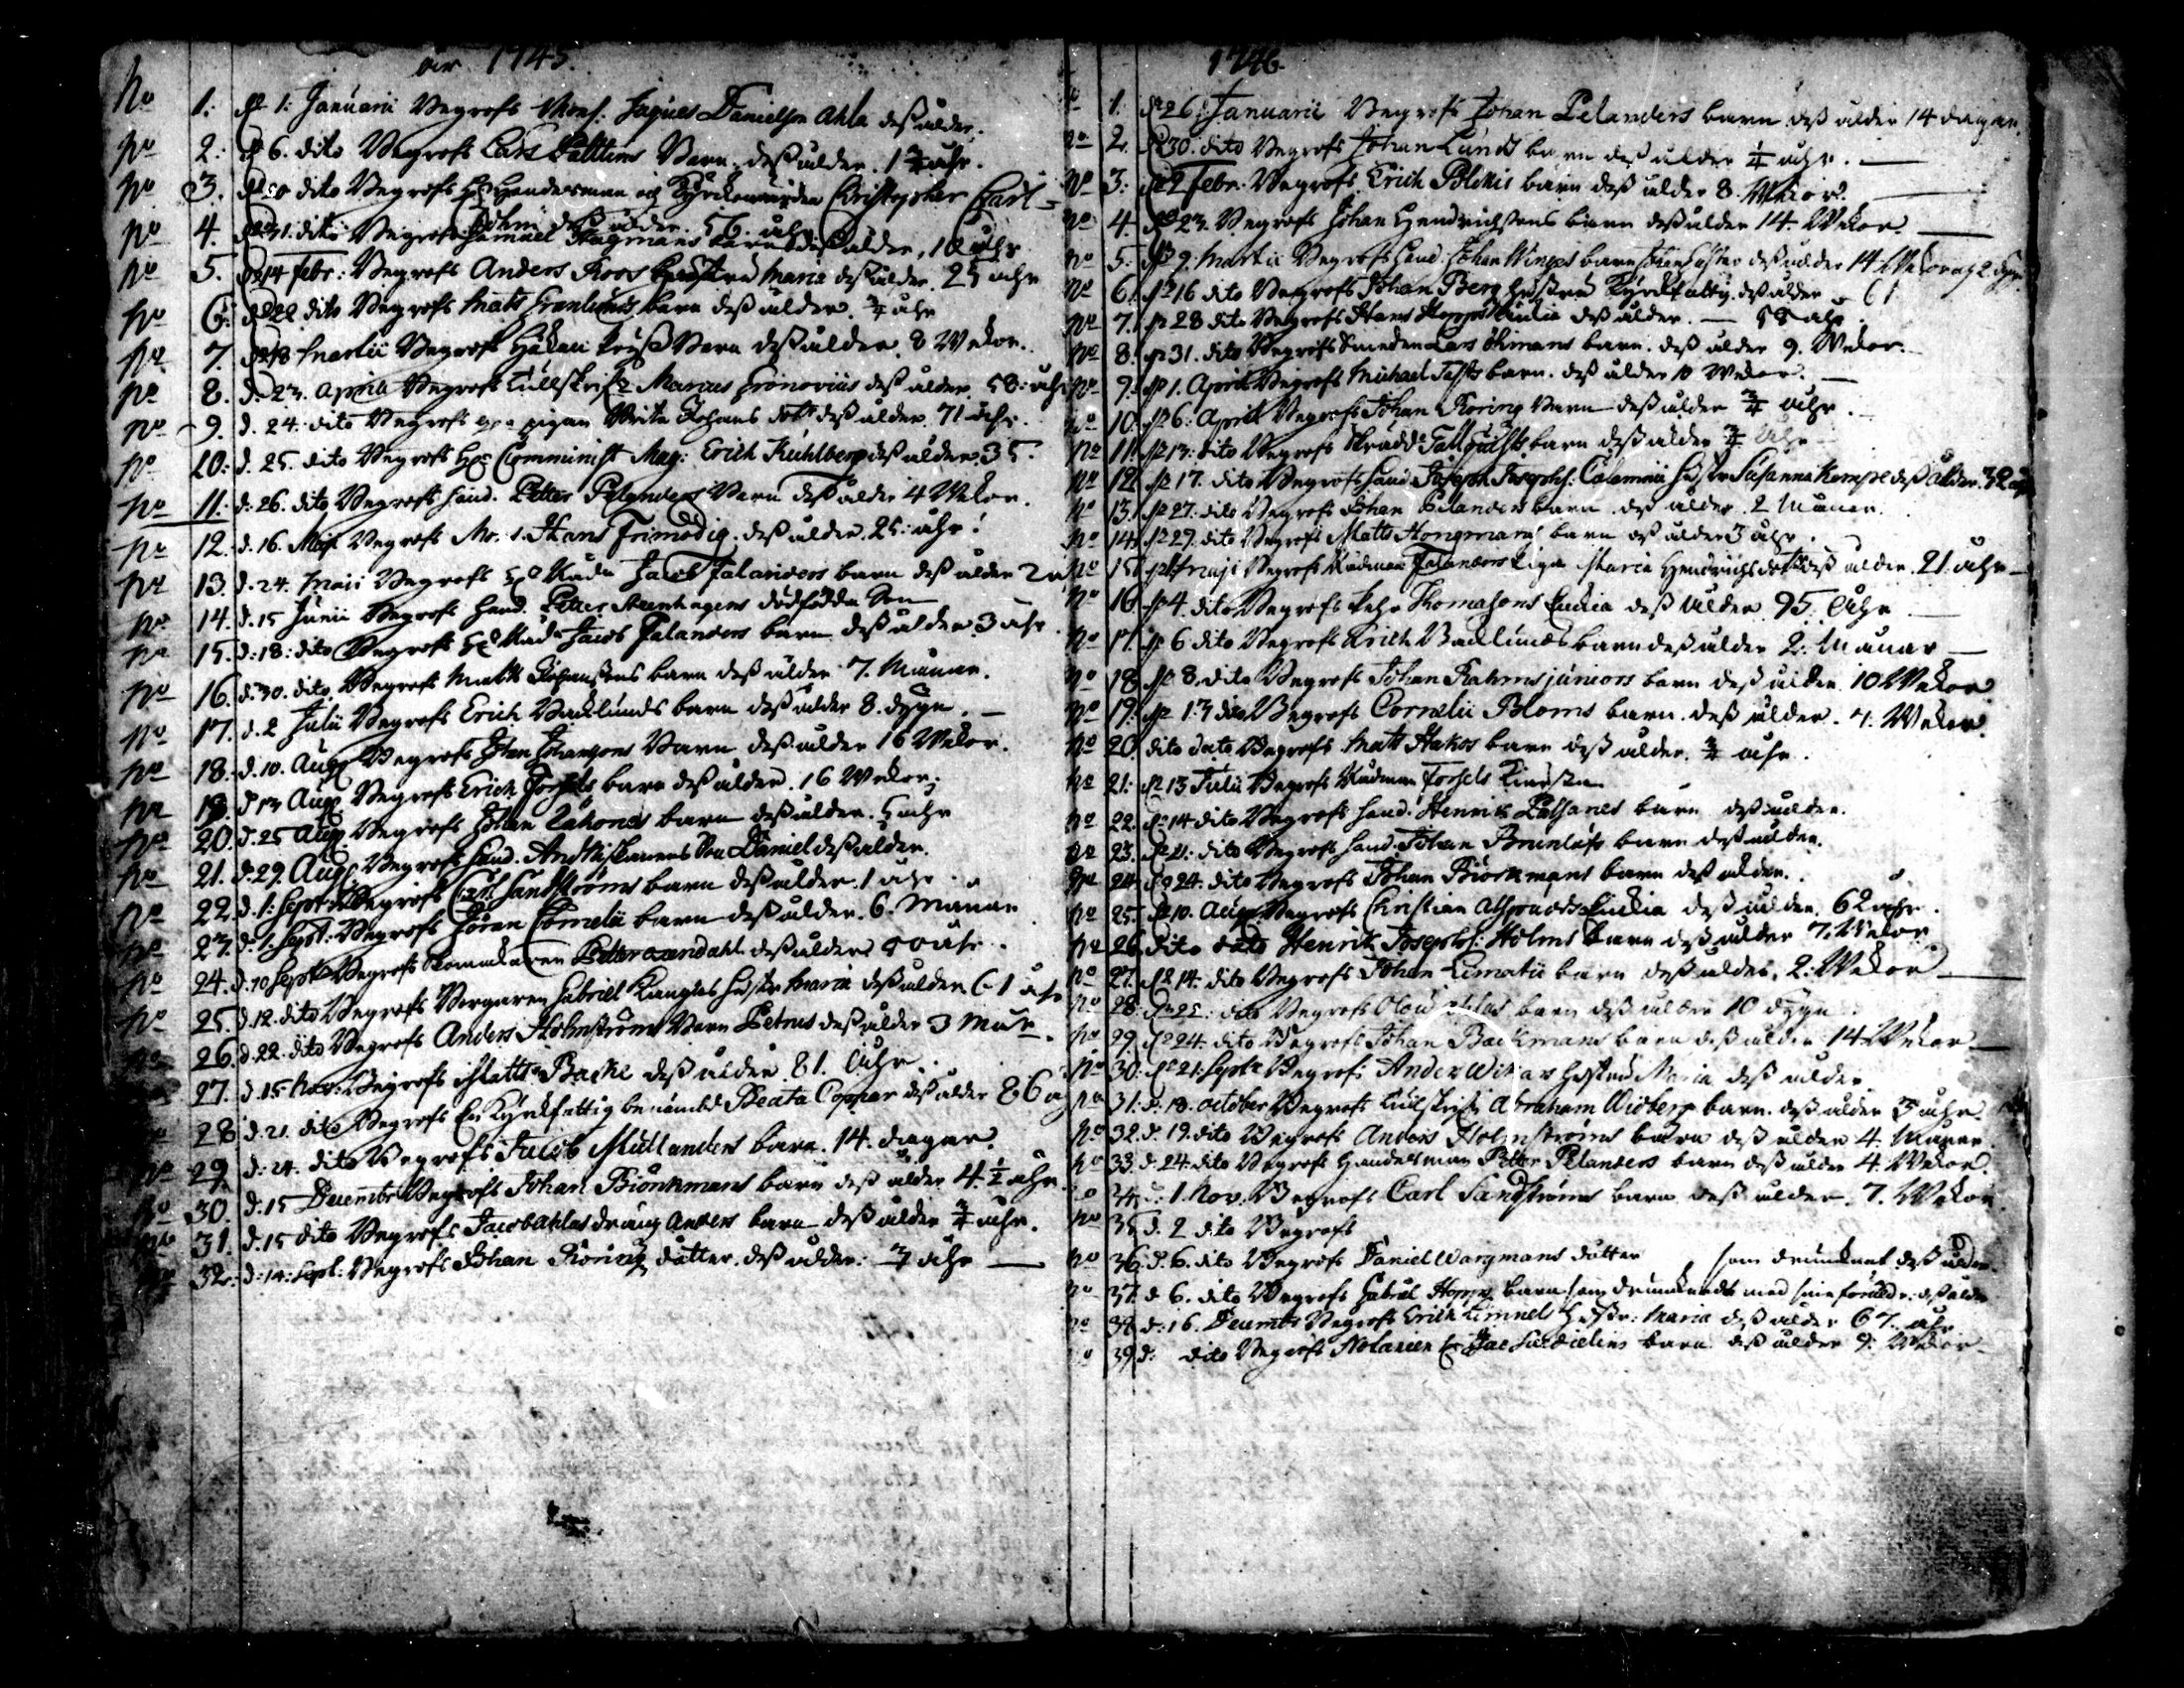 år 1745.
No 1: d 1: Januarii Begrofs Mons. Jaques Danielson Ahla deß ålder.
no 2: d 6. dito Begrofs Lars barn. deß ålder. 1 3/4 åhr.
no 3. d 20 dito Begrofs Hr Handelsman och Kyrckowärden Christopher Carl=
deß ålder. 56. åhr
no 4. d 31. dito Begrofs Samuel Hagmans barn deß ålder. 10 åhr
no 5. d 14 febr: Begrofs Anders Roos hustru Maria deß ålder. 25 åhr
no 6: d 22 dito Begrofs Mats Granlunds barn deß ålder. 3/4 åhr
no 7. d 18 Martii Begrofs Håkan barn deß ålder. 8 Wekor.
no 8. d. 23. Aprilis Begrofs Tullskrifr Marcus Gronovius deß ålder. 58: åhr
no 9. d. 24. dito Begrofs pigan Brita Johans dotr deß ålder. 71 åhr.
no 10: d. 25. dito Begrofs Hr Comminist Mag: Erich Kuhlberg deß ålder. 35.
no 11: d. 26. dito Begrofs hand. Petter Pelanders Barn deß ålder 4 Wekor.
no 12. d. 16. Maji Begrofs Mr. Hans Frimodig. deß ålder. 25: åhr.
no 13. d. 24. Maii Begrofs Rådm Jacob Falanders barn deß ålder 2
no 14. d. 15 Junii Begrofs hand. Petter Steenhagens dödfödda Son
no 15. d. 18: dito Begrofs Rådm Jacob Falanders barn deß ålder 3 åhr
no 16. d. 30. dito. Begrofs Matts Johanßons barn deß ålder 7. Månan.
no 17. d. 2 Julii Begrofs Erich Backlunds barn deß ålder 8. dygn.
no 18. d. 10. Aug Begrofs Johan Johanssons Barn deß ålder 16 Wekor.
no 19. d 13 Aug Begrofs Erich Forsels barn deß ålder. 16 Wekor.
no 20. d. 25 Aug Begrofs Johan barn deß ålder. åhr
no 21. d. 29. Aug Begrofs hand. Son Daniel deß ålder.
no 22. d. 1: Septr Begrofs Carl Sandströms barn deß ålder. 1 åhr
no 23. d. 1. Sept: Begrofs Jöran Cornelii barn deß ålder. 6. Månan
no 24. d. 10 Septr Begrofs Skomakaren Petter deß ålder åhr.
no 25. d. 12. dito Begrofs Borgaren Gabriel Kanglas hustr Maria deß ålder. 61 åhr
no 26. d. 22. dito Begrofs Anders Holmströms Barn Petrus deß ålder 3 Mån.
27. d. 15 Nov: Begrofs Matts Backe deß ålder 81. åhr.
28 d. 21. dito Begrofs En Kyrckfattig benämbd Beata Coppar deß ålder 86
no 29. d. 24. dito Begrofs Jacob Mullanders barn. 14. dagar.
no 30. d. 15 Decembr Begrofs Johan Biörkmans barn deß ålder 4 1/2 åhr.
no 31. d. 15 dito Begrofs Jacob Ahlas dräng Anders barn deß ålder 3/4 åhr.
no 32. d. 14: Sept: Begrofs Johan Roring dotter. deß ålder: 3/4 åhr
1746.
1. d 26. Januarii Begrofs Johan Pelanders barn deß ålder 14 dagar.
no 2. d 30. dito Begrofs Johan Lunds barn deß ålder 1/4 åhr.
no 3: d 9 Febr: Begrofs Erich barn deß ålder 8. Wekor.
no 4. d 23. Begrofs Johan Hendrichsens barn deß ålder 14. Wekor.
no 5. d 9. Martii Begrofs hand. Johan barn deß ålder 14 Wekor och 2 dygn.
no 6. d 16 dito Begrofs Johan Berg hustru Kyrckfattig. deß ålder 61
no 7. d 28 dito Begrofs Hans Enckia deß ålder. 58 åhr.
no 8. d 31. dito Begrofs Smeden Lars Öhmans barn. deß ålder 9. Wekor.
no 9. d 1. April Begrofs Michael barn. deß ålder 10 Wekor.
no 10. d 6. April Begrofs Johan Roring barn deß ålder 3/4 åhr.
no 11. d 13. dito Begrofs Skrädd barn deß ålder 3/4 åhr
no 12. d 17. dito Begrofs hand. Joseph Josephs: Calamnii hustr Susanna Kempe deß ålder. 32 åhr
no 13. d 27. dito Begrofs Johan Pelanders barn deß ålder 2 Månan.
no 14. d 29. dito Begrofs Matts Hongmans barn deß ålder 3 åhr.
no 15. Maji Begrofs Rådman Falanders piga Maria Hendrichsdotter deß ålder. 21. åhr
no 16. d 4. dito Begrofs Pehr Thomasons Enckia deß ålder. 95. åhr
no 17. d 6 dito Begrofs Erich Backlunds barn deß ålder 2. Månar
no 18. d 8. dito Begrofs Johan Rahms juniors barn deß ålder 10 Wekor
no 19. d 13 dito Begrofs Cornelii Bloms barn. deß ålder. 7. Wekor.
no 20. dito dato Begrofs Matts Hakos barn deß ålder. 3/4 åhr.
no 21: d 13 Julii Begrofs Rådman Forsels
no 22. d 14 dito Begrofs hand. Henrik barn deß ålder.
no 23. d 21: dito Begrofs hand. Johan barn deß ålder.
no 24. d 24. dito Begrofs Johan Biörkmans barn deß ålder.
no 25. d 10. Aug Begrofs Christian Enckia deß ålder. 62 åhr.
no 26. dito dato Henrik Josephs: Holms barn deß ålder 7. Wekor
no 27. d 14. dito Begrofs Johan Limatii barn deß ålder. 2. Wekor
no 28. d 25. dito Begrofs Olow Ahlas barn deß ålder 10 dygn
no 29. d 24. dito Begrofs Johan Backmans barn deß ålder 14 Wekor
no 30. d 21. Septr Begrofs Anders hustru Maria deß ålder
no 31. d. 18. October Begrofs Tullskrifr Abraham Widberg barn. deß ålder 3 åhr
no 32. d. 19. dito Begrofs Anders Holmströms barn deß ålder 4. Månar.
no 33. d. 24. dito Begrofs Handelsman Petter Pelanders barn deß ålder 4. Wekor.
34. d. 1. Nov. Begrofs Carl Sandströms barn deß ålder. 7. Wekor
no 35 d. 2 dito Begrofs
no 36. d. 6. dito Begrofs Daniel Wargmans dotter som drunknat deß ålder.
no 37. d 6. dito Begrofs Gabriel barn som drunknade med sine föräldr. deß ålder
no 38. d. 16. Decembr Begrofs Erich Limnel hustr: Maria deß ålder 67. åhr
39. d. dito Begrofs Notarien barn deß ålder 9. Wekor